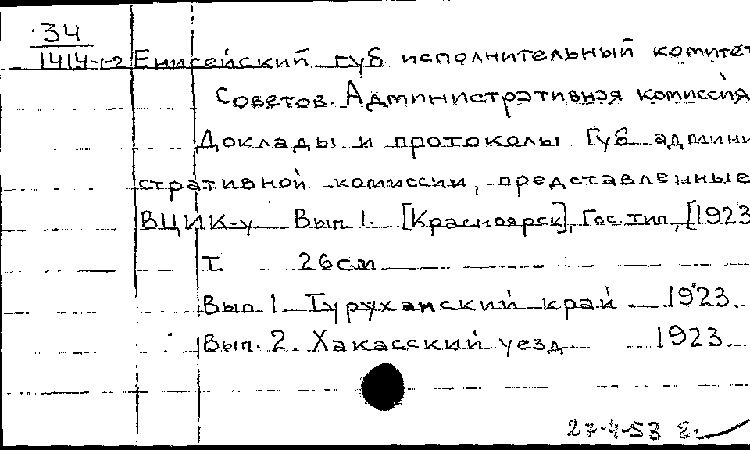 34
1414-52 Енисейский губ исполнительный комитет
Советов. Административная комиссия
Доклады и протоколы Губ админи
стративной комиссии, представленные
ВЦИК-у Вып 1. [Красноярск], Гос. тип., [1923
Т. 26см
Вып. 1. Туруханский край 1923.
Вып. 2. Хакасский уезд 1923.
27-4-53